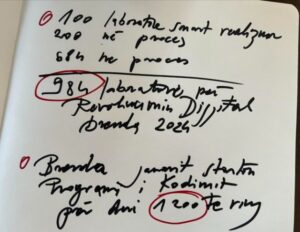 100 laboratore smart realizuar
200 në proces
684 në proces
984 laboratorë për
Revolucionin Digjital
brenda 2024
Brenda janarit starton
Programi i Kodimit
për dhi 1200 të rinj